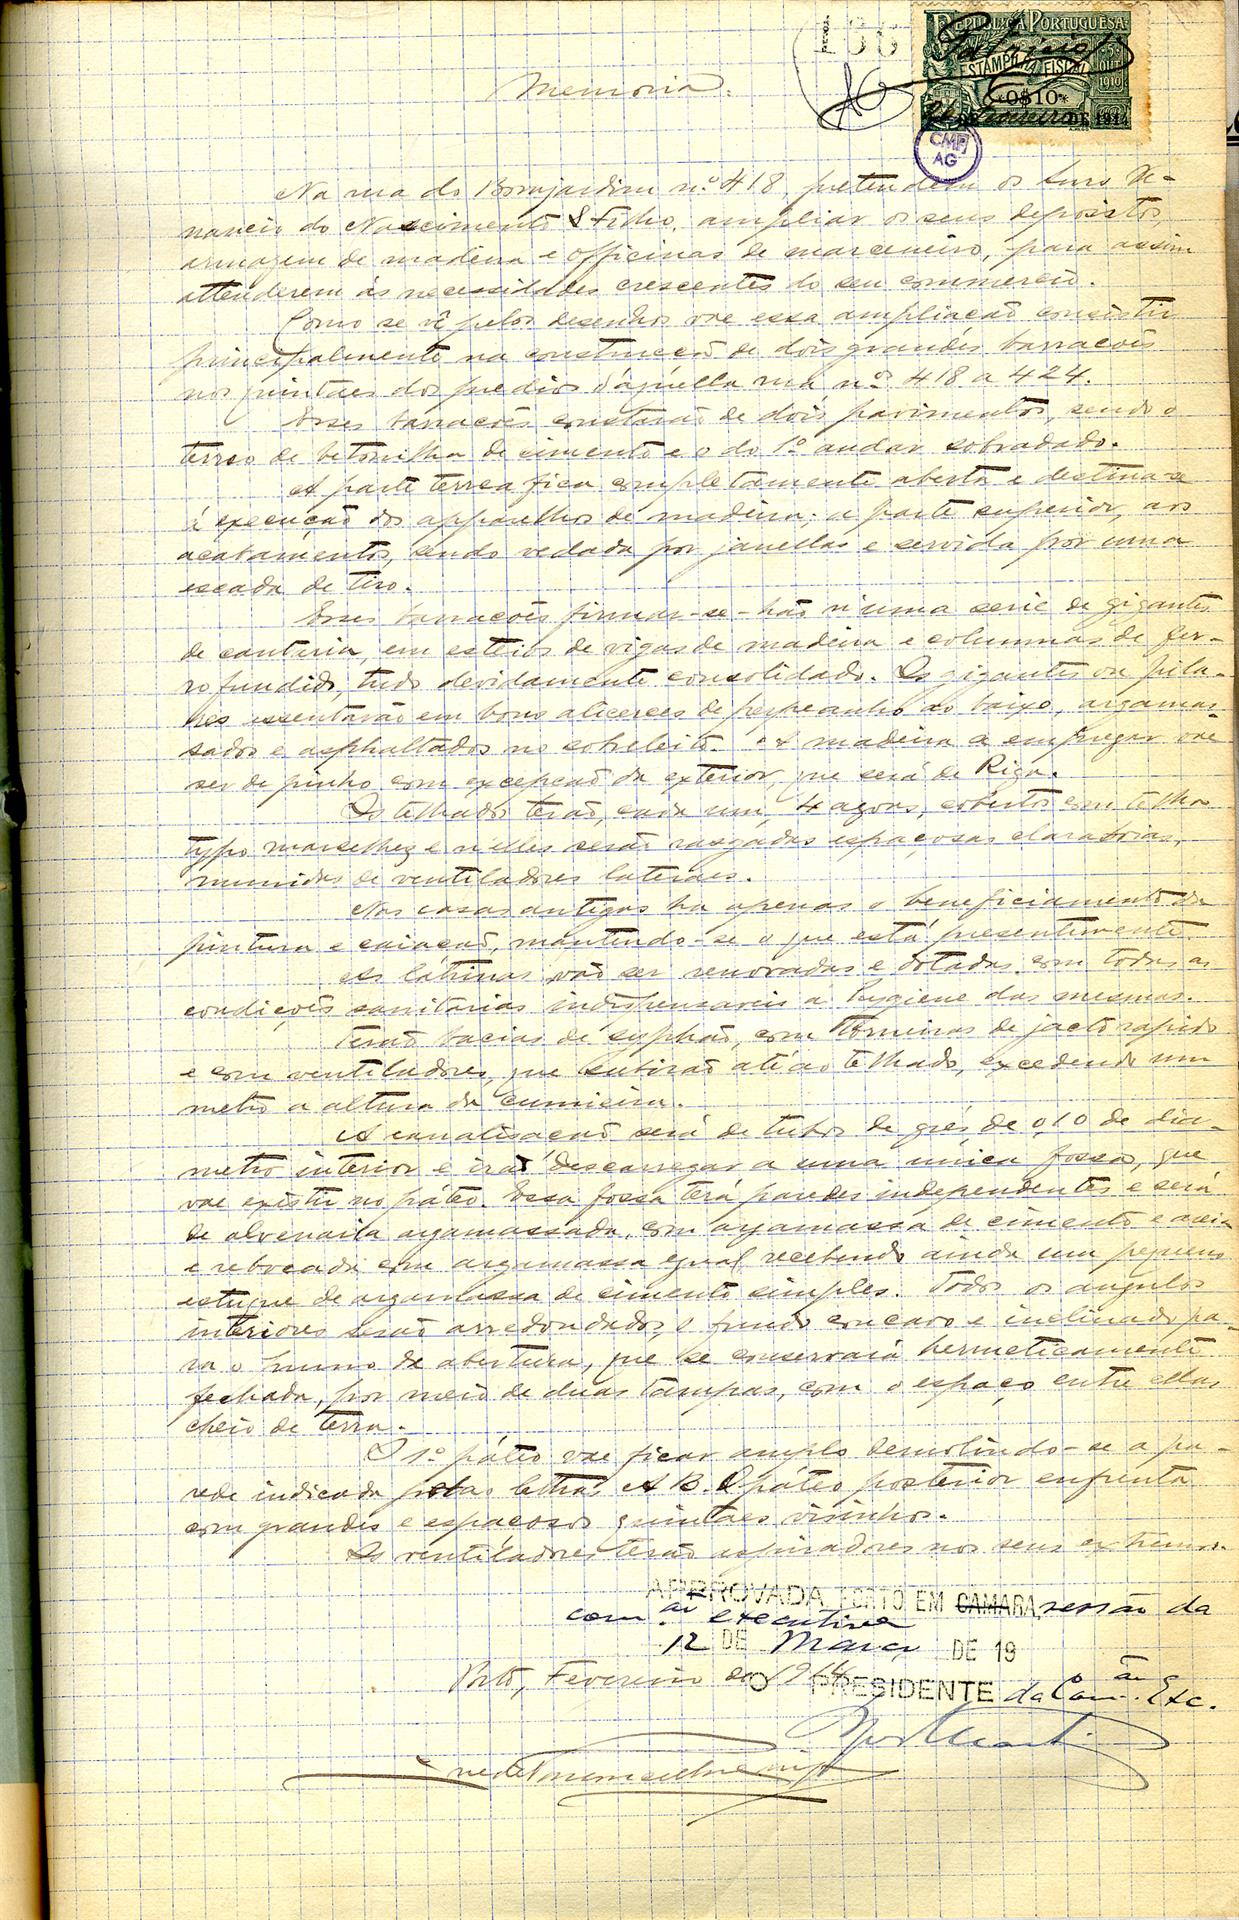 REPUBLICA PORTUGUESA
5 OUT 1910
ESTAMPILHA FISCAL
*0$10*
DE 1914
CMP
AG
Memoria.
Na rua do Bomjardim n.º 418, pretendem os
nancio do Nascimento & Filho, ampliar os seus depositos,
armazem de madeira e officinas de marceneiro, para assim
attenderem ás necessidades crescentes do seu commercio.
Como se vê pelos desenhos vae essa ampliação consistir
principalmente na construcção de dois grandes barracões
nos quintaes dos predios d'aquella rua n.os 418 a 424.
Esses barracões constarão de dois pavimentos, sendo o
terreo de betonilha de cimento e o do 1.º andar sobradado.
A parte terrea fica completamente aberta e destina-se
á execução dos apparelhos de madeira; a parte superior, aos
acabamentos, sendo vedada por janellas e servida por uma
escada de tiro.
Esses barracões firmar-se-hão n'uma serie de gigantes
de cantaria, em esteios de vigas de madeira e columnas de fer-
ro fundido, tudo devidamente consolidado. Os gigantes ou pila-
res assentarão em bons alicerces de perpeanho ao baixo, argamas-
sados e asphaltados no sobreleito. A madeira a empregar vae
ser de pinho com excepção da exterior, que será de Riga.
Os telhados terão, cada um, 4 agoas, cobertos com telha
typo marselhez e n'elles serão rasgadas espaçosas claraboias,
munidas de ventiladores lateraes.
Nas casas antigas ha apenas o beneficiamento da
pintura e caiação, mantendo-se o que está presentemente.
As latrinas vão ser renovadas e dotadas com todas as
condições sanitarias indispensaveis á hygiene das mesmas.
Terão bacias de syphão, com torneiras de jacto rapido
e com ventiladores, que subirão até ao telhado, excedendo um
metro a altura da cumieira.
A canalisação será de tubos de grés de 0,10 de dia-
metro interior e irão descarregar a uma unica fossa, que
vae existir no páteo. Essa fossa terá paredes independentes e será
de alvenaria argamassada, com argamassa de cimento e areia
e rebocada com argamassa egual recebendo ainda um pequeno
estuque de argamassa de cimento simples. Todos os angulos
interiores serão arredondados, o fundo concavo e inclinado pa-
ra o lumo da abertura, que se conservará hermeticamente
fechada, por meio de duas tampas, com o espaço entre ellas
cheio de terra.
O 1.º páteo vae ficar amplo demolindo-se a pa-
rede indicada pelas letras A B. O páteo posterior enfrenta
com grandes e espaçosos quintaes visinhos.
Os ventiladores terão aspiradores nos seus extremos.
APPROVADA. PORTO EM CAMARA, sessão da
com.ão executiva
12 DE Março DE 19
Porto, Fevereiro de 1914
O PRESIDENTE da Com.ão Exc.